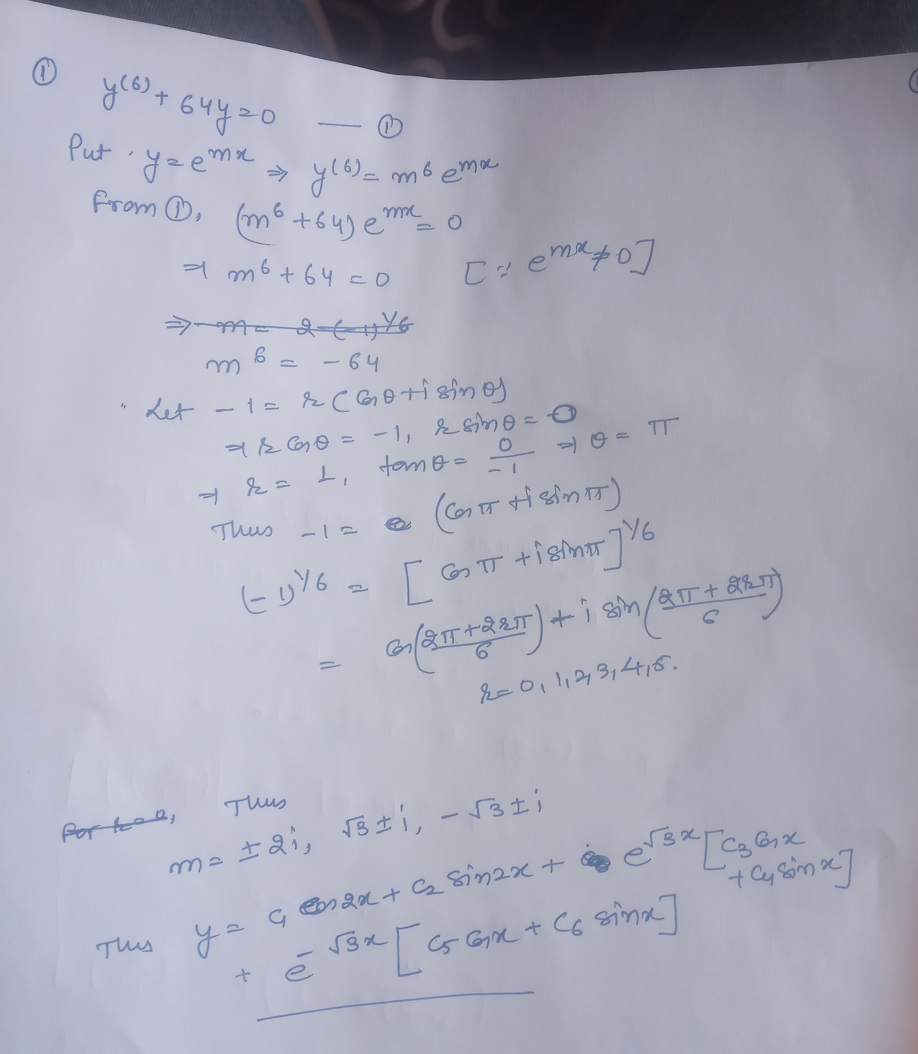 ① y(6) + 64y = 0 — ①
Put . y = e^mx ⇒ y(6) = m^6 e^mx
From ①, (m^6 + 64) e^mx = 0
⇒ m^6 + 64 = 0 [∵ e^mx ≠ 0]
⇒ m = 2 (-1)^1/6
m^6 = -64
Let -1 = r (cosθ + i sinθ)
⇒ r cosθ = -1, r sinθ = 0
⇒ r = 1, tanθ = 0/-1 ⇒ θ = π
Thus -1 = (cosπ + i sinπ)
(-1)^1/6 = [cosπ + i sinπ]^1/6
= cos(2π + 2rπ/6) + i sin(2π + 2rπ/6)
r = 0, 1, 2, 3, 4, 5.
For k = 0, Thus
m = ± 2i, √3 ± i, -√3 ± i
Thus y = c1 cos2x + c2 sin2x + e^√3x [c3 cosx
+ c4 sinx]
+ e^-√3x [c5 cosx + c6 sinx]